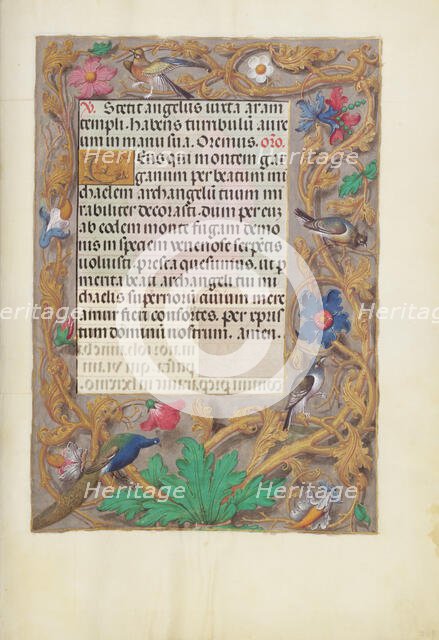 V. Stetit angelus iuxta aram
templi. habens turibulũ aure
um in manu sua. Oremus. oro.
Deus qui montem gar
ganum per beatum mi
chaelem archangelũ tuum mi
rabiliter decorasti. dum per eũ
ab eodem monte fugam demo
nis in speciem venenose serpẽtis
voluisti. presta quesumus. ut
merita beati archangeli tui mi
chaelis supernorũ ciuium mere
amur fieri consortes. per cristũ
tum dominũ nostrum. amen.
Heritage
Heritage
Heritage
Heritage
Heritage
Heritage
Heritage
Heritage